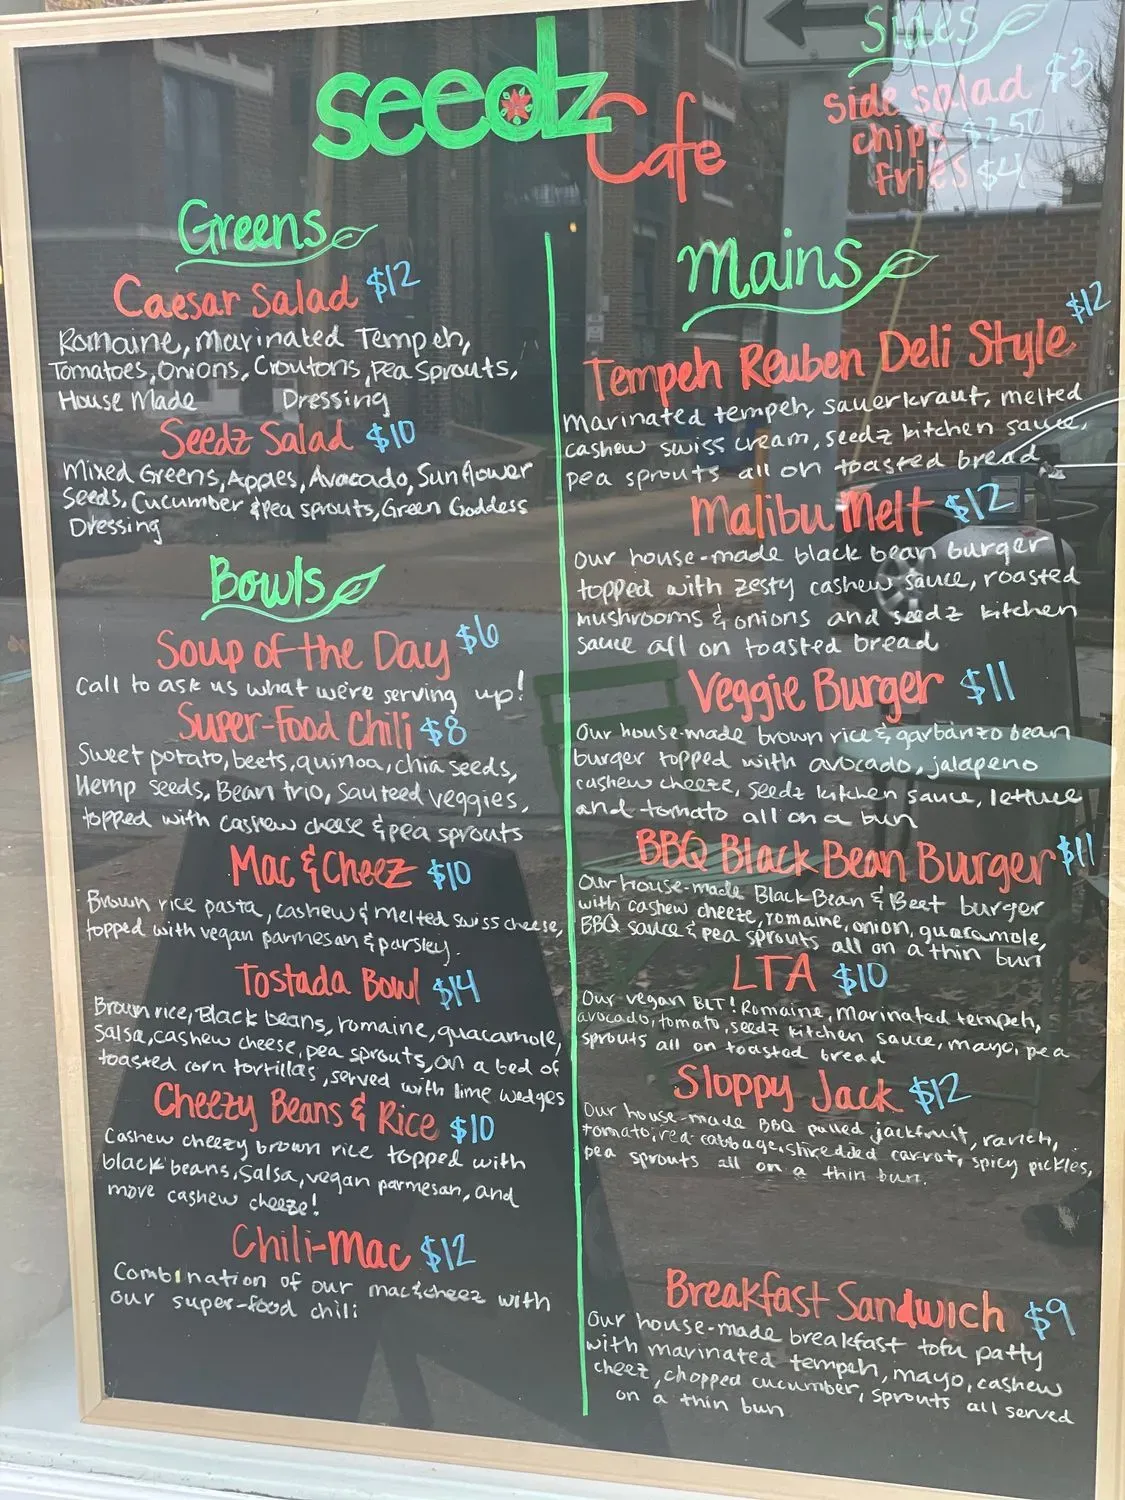 seedz
Cafe
Sides
side salad $3
chips $2.50
fries $4
Greens
Caesar Salad $12
Romaine, Marinated Tempeh,
Tomatoes, Onions, Croutons, Pea Sprouts,
House Made Dressing
Seedz Salad $10
Mixed Greens, Apples, Avocado, Sunflower
Seeds, Cucumber & pea sprouts, Green Goddess
Dressing
Bowls
Soup of the Day $6
Call to ask us what we're serving up!
Super-Food Chili $8
Sweet potato, beets, quinoa, chia seeds,
Hemp seeds, Bean trio, Sauteed veggies,
topped with cashew cheese & pea sprouts
Mac & Cheez $10
Brown rice pasta, cashew & melted swiss cheese,
topped with vegan parmesan & parsley.
Tostada Bowl $14
Brown rice, Black beans, romaine, guacamole,
salsa, cashew cheese, pea sprouts, on a bed of
toasted corn tortillas, served with lime wedges
Cheezy Beans & Rice $10
Cashew cheezy brown rice topped with
black beans, salsa, vegan parmesan, and
more cashew cheeze!
Chili-Mac $12
Combination of our mac & cheez with
our super-food chili
Mains
$12
Tempeh Reuben Deli Style
marinated tempeh, sauerkraut, melted
cashew swiss cream, seedz kitchen sauce,
pea sprouts all on toasted bread
Malibu Melt $12
Our house-made black bean burger
topped with zesty cashew sauce, roasted
mushrooms & onions and seedz kitchen
sauce all on toasted bread
Veggie Burger $11
Our house-made brown rice & garbanzo bean
burger topped with avocado, jalapeno
cashew cheeze, seedz kitchen sauce, lettuce
and tomato all on a bun
BBQ Black Bean Burger $11
Our house-made Black Bean & Beet burger
with cashew cheeze, romaine, onion, guacamole,
BBQ sauce & pea sprouts all on a thin bun
LTA $10
Our vegan BLT! Romaine, marinated tempeh,
avocado, tomato, seedz kitchen sauce, mayo, pea
sprouts all on toasted bread
Sloppy Jack $12
Our house-made BBQ pulled jackfruit, ranch,
tomato, red cabbage, shredded carrot, spicy pickles,
pea sprouts all on a thin bun.
Breakfast Sandwich $9
Our house-made breakfast tofu patty
with marinated tempeh, mayo, cashew
cheez, chopped cucumber, sprouts all served
on a thin bun